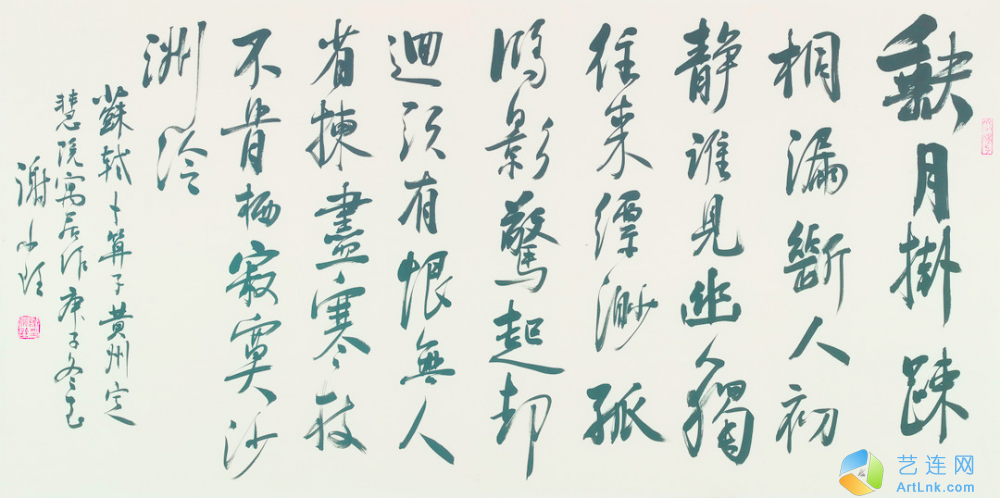 缺月掛疎
桐漏斷人初
静誰見幽人獨
往来縹渺孤
鴻影驚起却
迴頭有恨無人
省揀盡寒枝
不肯栖寂寞沙
洲冷
蘇軾卜算子黄州定
慧院寓居作 庚子冬至
謝小
艺连网
ArtLnk.com